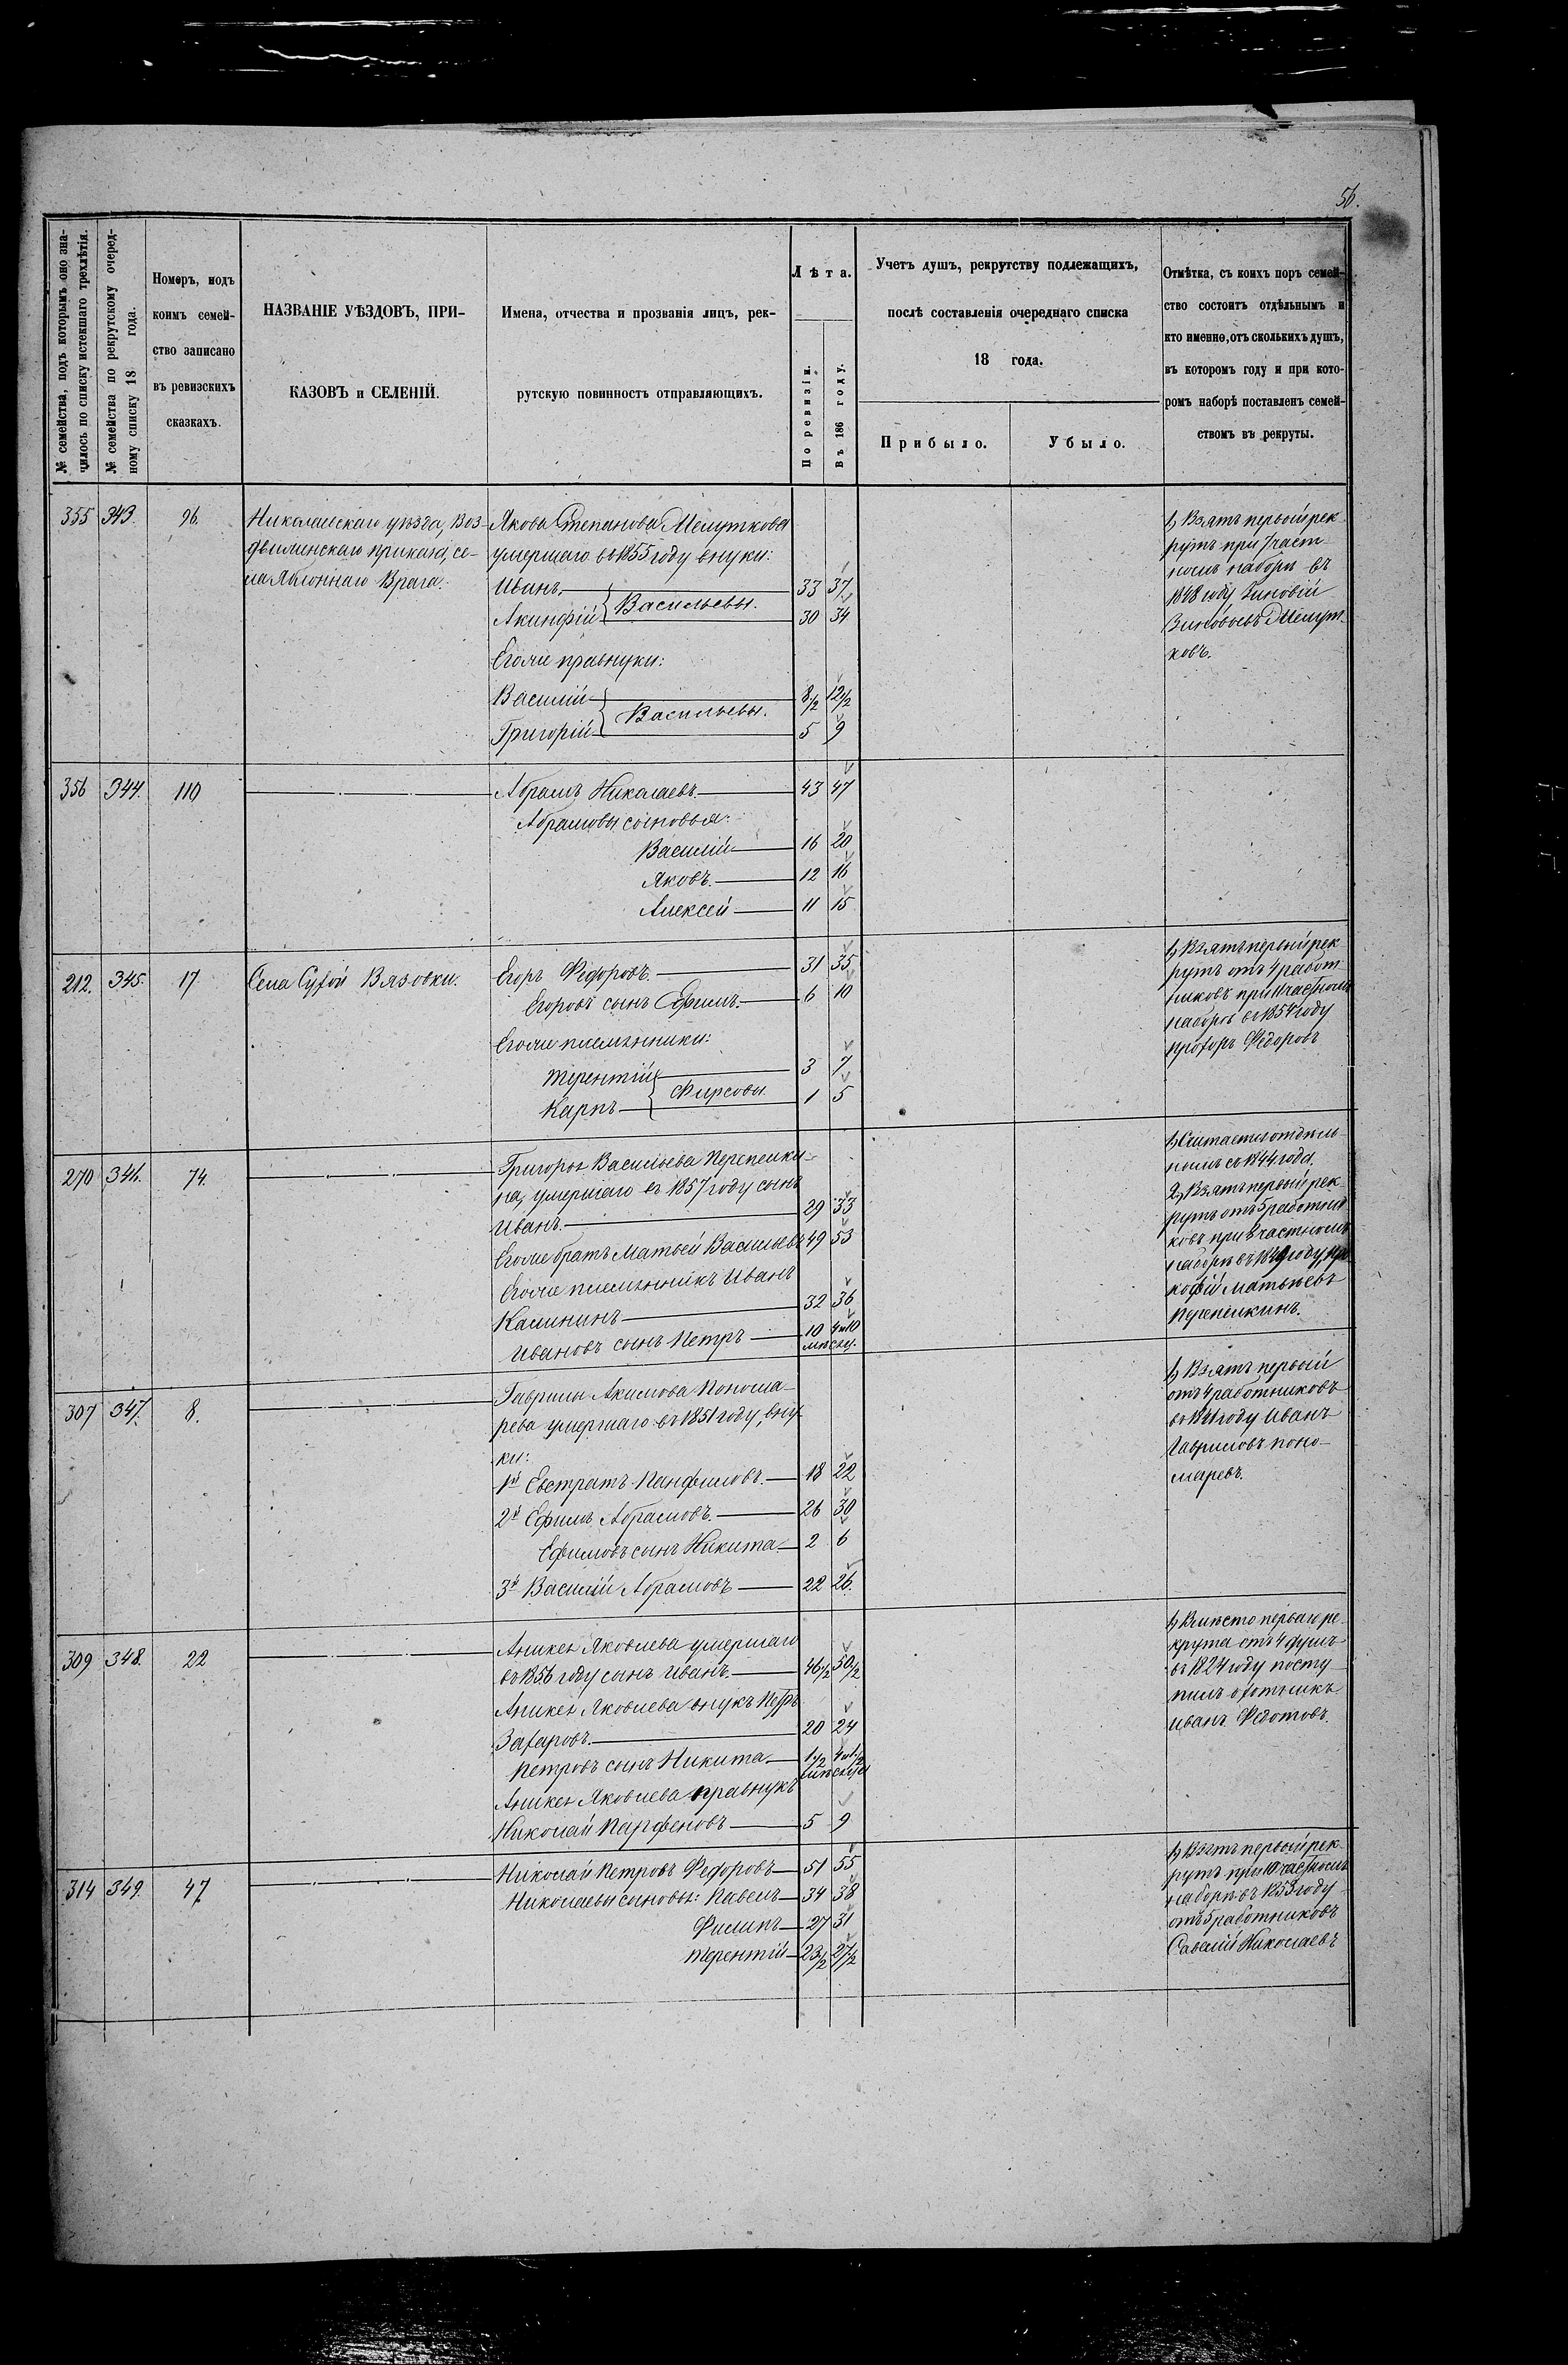 56.
№ семейства, подъ которымъ оно зна-
чилось по списку истекшаго трехлѣтія.
№ семейства по рекрутскому очеред-
ному списку 18 года.
Номеръ, подъ
коимъ семей-
ство записано
въ ревизскихъ
сказкахъ.
НАЗВАНІЕ УѢЗДОВЪ, ПРИ-
КАЗОВЪ и СЕЛЕНІЙ.
Имена, отчества и прозванія лицъ, рек-
рутскую повинность отправляющихъ.
Лѣта.
По ревизіи.
Въ 186 году.
Учетъ душъ, рекрутству подлежащихъ,
послѣ составленія очереднаго списка
18 года.
Прибыло.
Убыло.
Отмѣтка, съ коихъ поръ семей-
ство состоитъ отдѣльнымъ и
кто именно, отъ сколькихъ душъ,
въ которомъ году и при кото-
ромъ наборѣ поставленъ семей-
ствомъ въ рекруты.
355 343. 96.
Николаевскаго уѣзда, Воз-
движенскаго приказа, се-
ла Яблоннаго Врага.
Якова Степанова
умершаго въ 1855 году внуки:
Иванъ 33 37
Акинфій Васильевы. 30 34
Егоже правнуки:
Василій 8 1/2 12 1/2
Григорій Васильевы. 5 9
1, Взятъ первый рек
рутъ при 7 част
номъ наборѣ въ
1848 году Зиновій
Зиновьевъ
ковъ.
356 344. 110
Абрамъ Николаевъ 43 47
Абрамовы сыновья:
Василій 16 20
Яковъ. 12 16
Алексей 11 15
212. 345. 17.
Села Сухой Вязовки.
Егоръ Федоровъ. 31 35
Егоровъ сынъ Ефимъ. 6 10
Егоже племянники:
Терентій 3 7
Карпъ Фирсовы 1 5
1, Взятъ первый рек
рутъ отъ 4 работ
никовъ при 11 частномъ
наборѣ въ 1854 году
Прохоръ Федоровъ
270 346. 74.
Григорья Васильева Перепелки-
на, умершаго въ 1857 году сынъ
Иванъ. 29 33
Егоже братъ Матвей Васильевъ 49 53
Егоже племянникъ Иванъ
Калининъ 32 36
Ивановъ сынъ Петръ 10 4 и 10
мѣсяц.
1, Считается отдѣль
нымъ съ 1844 года.
2, Взятъ первый рек
рутъ отъ 5 работни
ковъ при 8 частномъ
наборѣ въ 1849 году, Про
кофій Матвѣевъ
Перепелкинъ.
307 347. 8.
Гаврилы Акимова Понома-
рева умершаго въ 1851 году, вну
ки:
1й Евстратъ Панфиловъ. 18 22
2й Ефимъ Абрамовъ. 26 30
Ефимовъ сынъ Никита 2 6
3й Василій Абрамовъ 22 26.
1, Взятъ первый
отъ 4 работниковъ
въ году Иванъ
Гавриловъ Поно-
маревъ.
309 348. 22
Аникея Яковлева умершаго
въ 1856 году сынъ Иванъ. 46 1/2 50 1/2
Аникея Яковлева внукъ Петръ
Захаровъ. 20 24
Петровъ сынъ Никита 1 1/2
мѣсяца
Аникея Яковлева правнукъ
Николай Парфеновъ 5 9
1, Вмѣсто перваго ре
крута отъ 4 душъ
въ 1824 году посту
пилъ охотникъ
Иванъ Федотовъ.
314 349. 47
Николай Петровъ Федоровъ 51 55
Николаевы сыновья: Павелъ 34 38
Филипъ 27 31
Терентій 23 1/2 27 1/2
1, Взятъ первый рек
рутъ при 10 частномъ
наборѣ въ 1853 году
отъ 5 работниковъ
Савелій Николаевъ